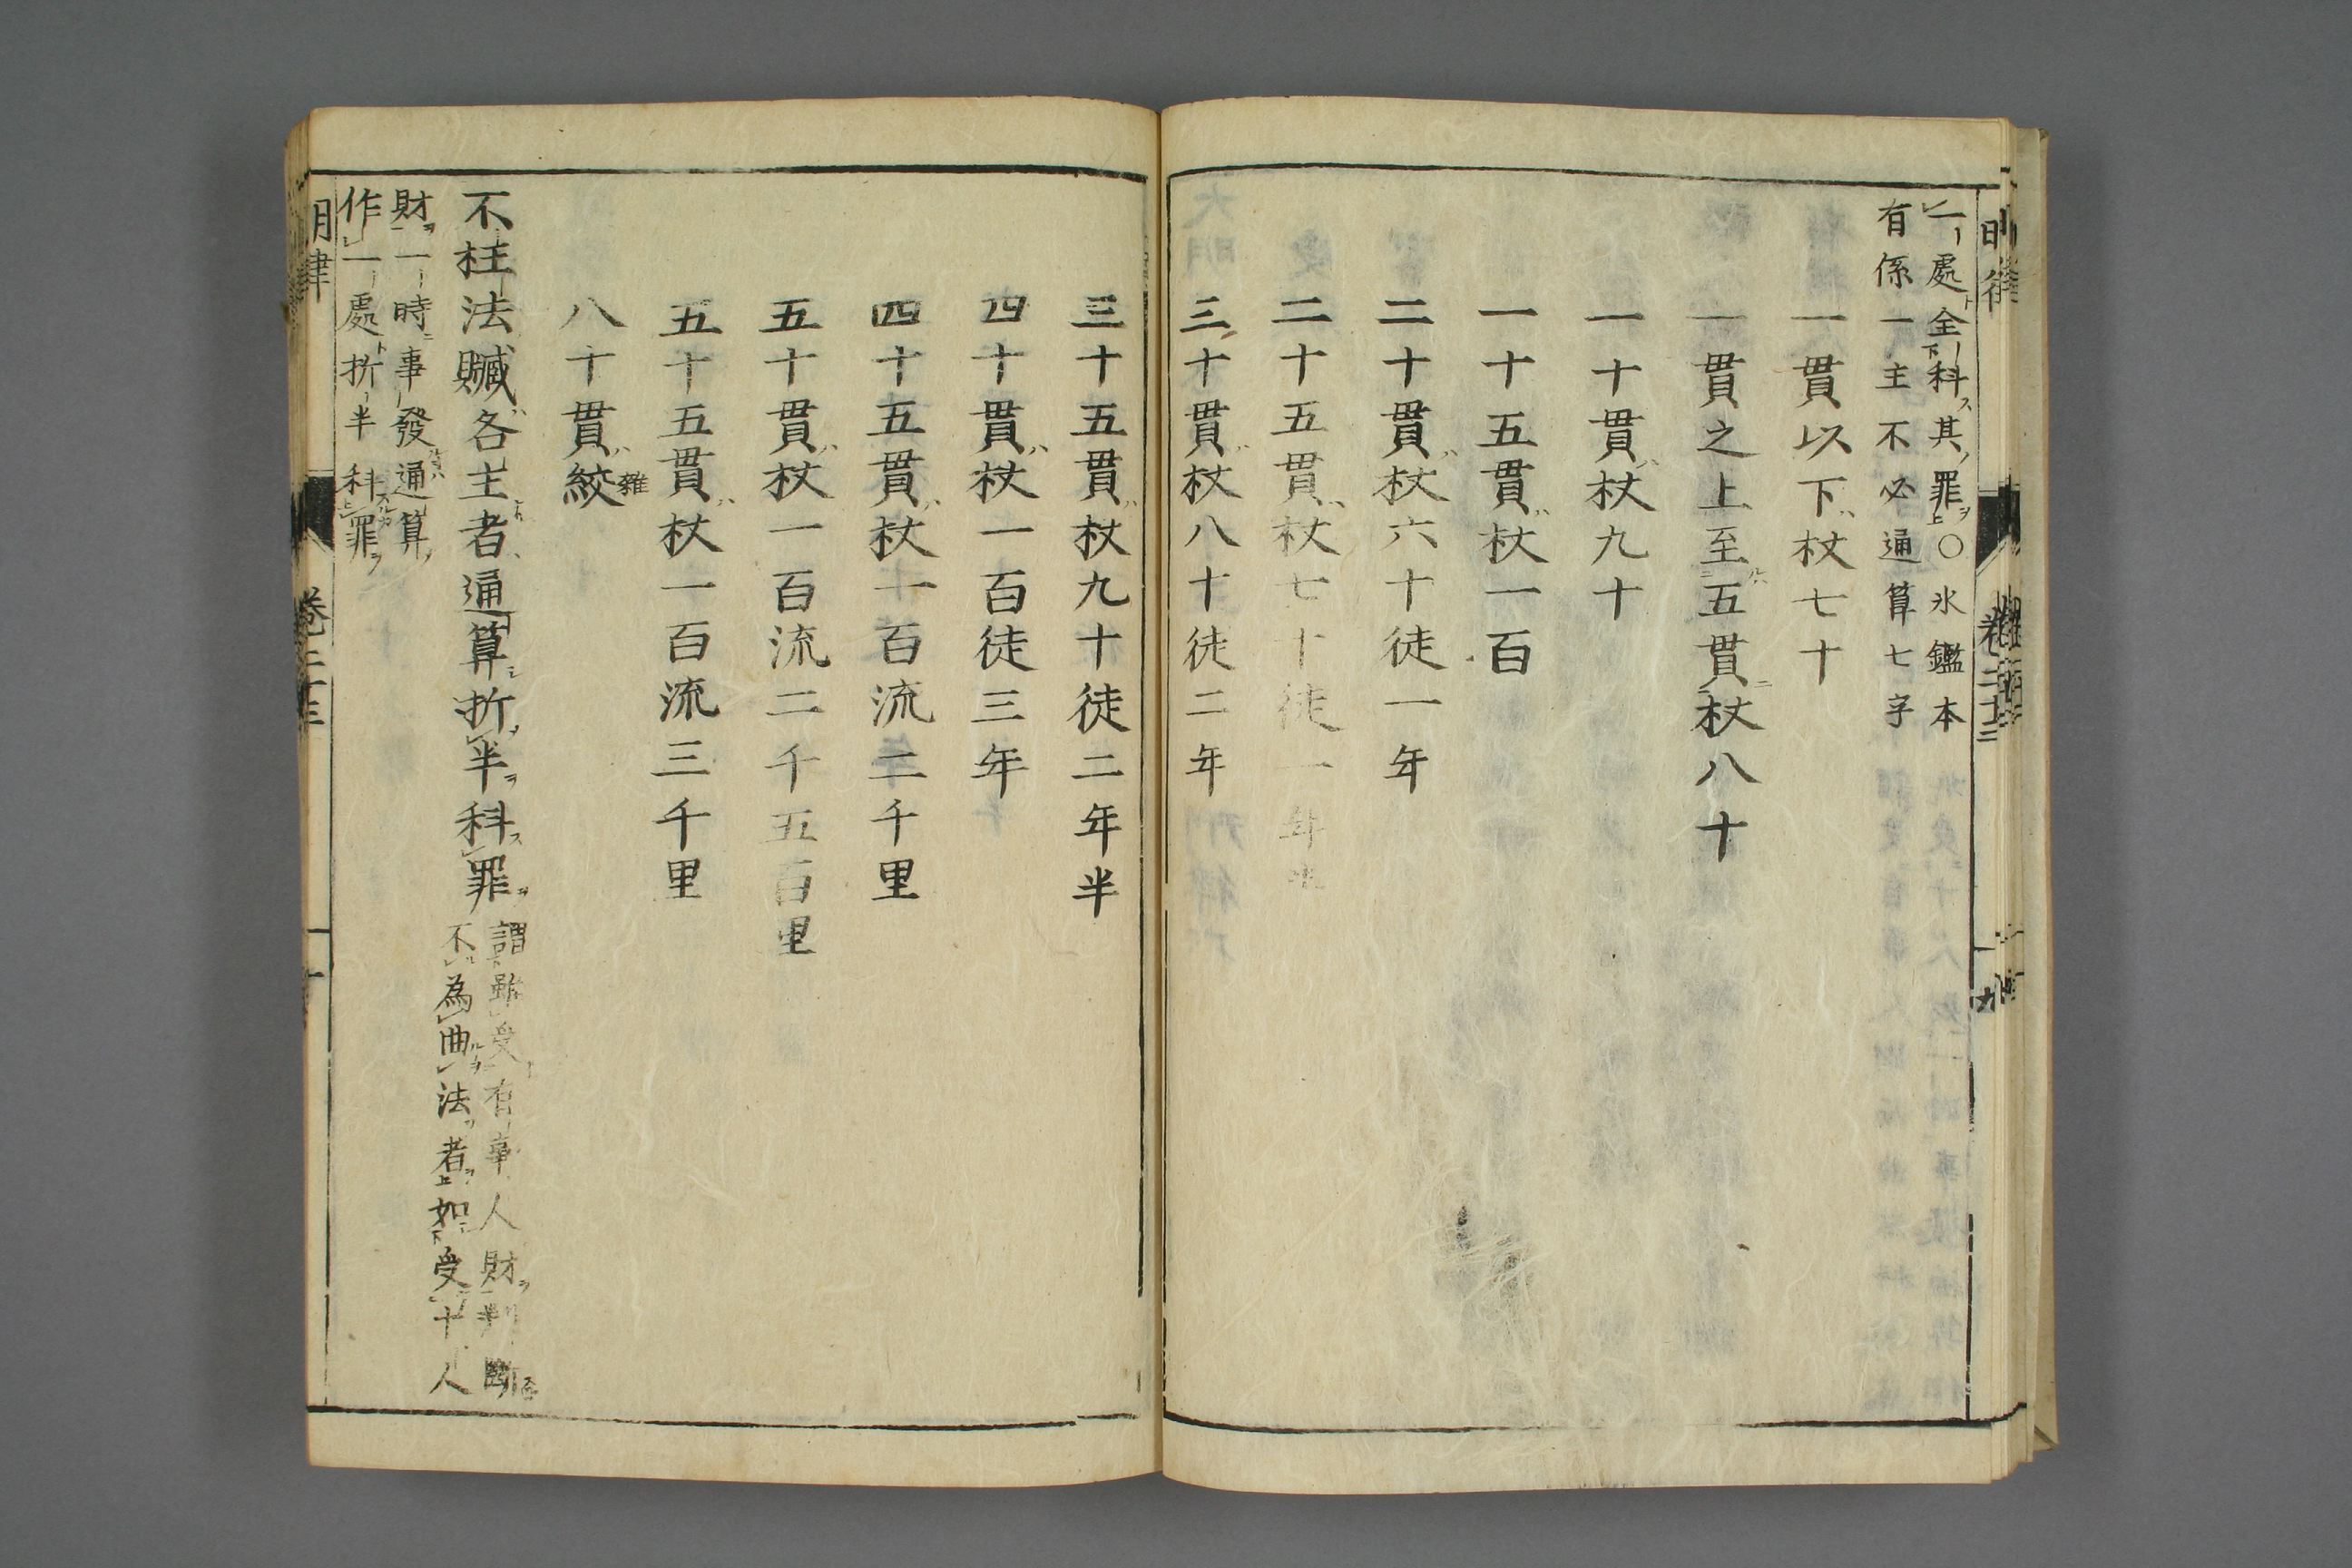 一處全科其罪〇氷鑑本
有係一主不必通算七字
一貫以下杖七十
一貫之上至五貫杖八十
一十貫杖九十
一十五貫杖一百
二十貫杖六十徒一年
二十五貫杖七十徒一年半
三十貫杖八十徒二年
三十五貫杖九十徒二年半
四十貫杖一百徒三年
四十五貫杖一百流二千里
五十貫杖一百流二千五百里
五十五貫杖一百流三千里
八十貫絞雜
不枉法贓各主者通算折半科罪謂雖受有事人財判斷
不為曲法者如受十人
財一時事發通算
作一處折半科罪
明律 卷二十三